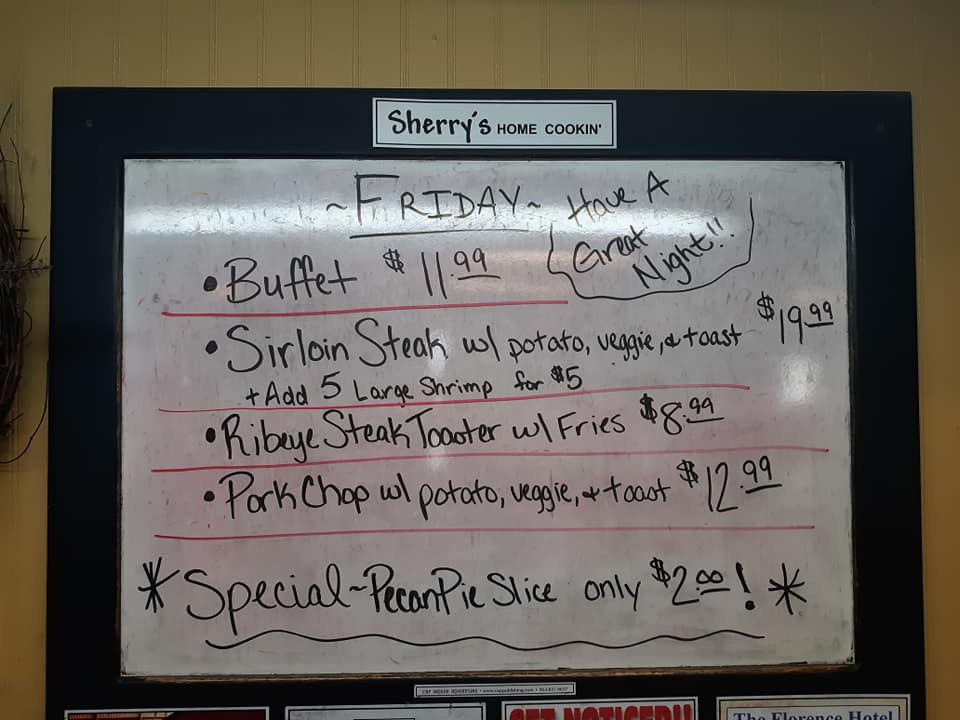 Sherry's HOME COOKIN'
~FRIDAY~
Have A
Great
Night!!
• Buffet $11.99
• Sirloin Steak w/ potato, veggie, & toast $19.99
+Add 5 Large Shrimp for $5
• Ribeye Steak Toaster w/ Fries $8.99
• Pork Chop w/ potato, veggie, & toast $12.99
* Special~Pecan Pie Slice only $2.00! *
GET NOTICED!!
The Florence Hotel